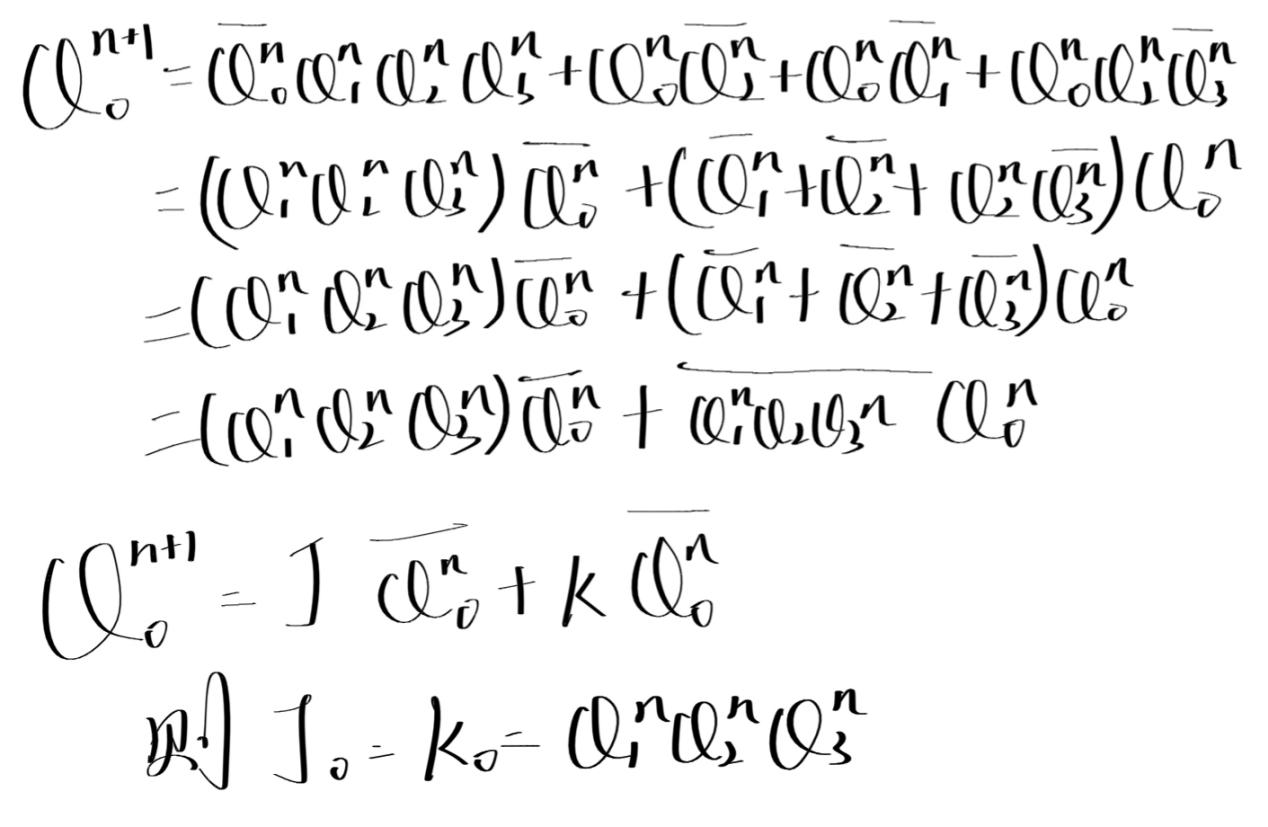 $Q_0^{n+1} = \overline{Q_0^n} Q_1^n Q_2^n Q_3^n + Q_0^n \overline{Q_2^n} + Q_0^n \overline{Q_1^n} + Q_0^n Q_2^n \overline{Q_3^n}$
$= (Q_1^n Q_2^n Q_3^n) \overline{Q_0^n} + (\overline{Q_1^n} + \overline{Q_2^n} + Q_2^n \overline{Q_3^n}) Q_0^n$
$= (Q_1^n Q_2^n Q_3^n) \overline{Q_0^n} + (\overline{Q_1^n} + \overline{Q_2^n} + \overline{Q_3^n}) Q_0^n$
$= (Q_1^n Q_2^n Q_3^n) \overline{Q_0^n} + \overline{Q_1^n Q_2 Q_3^n} Q_0^n$
$Q_0^{n+1} = J \overline{Q_0^n} + k \overline{Q_0^n}$
则 $J_0 = k_0 = Q_1^n Q_2^n Q_3^n$